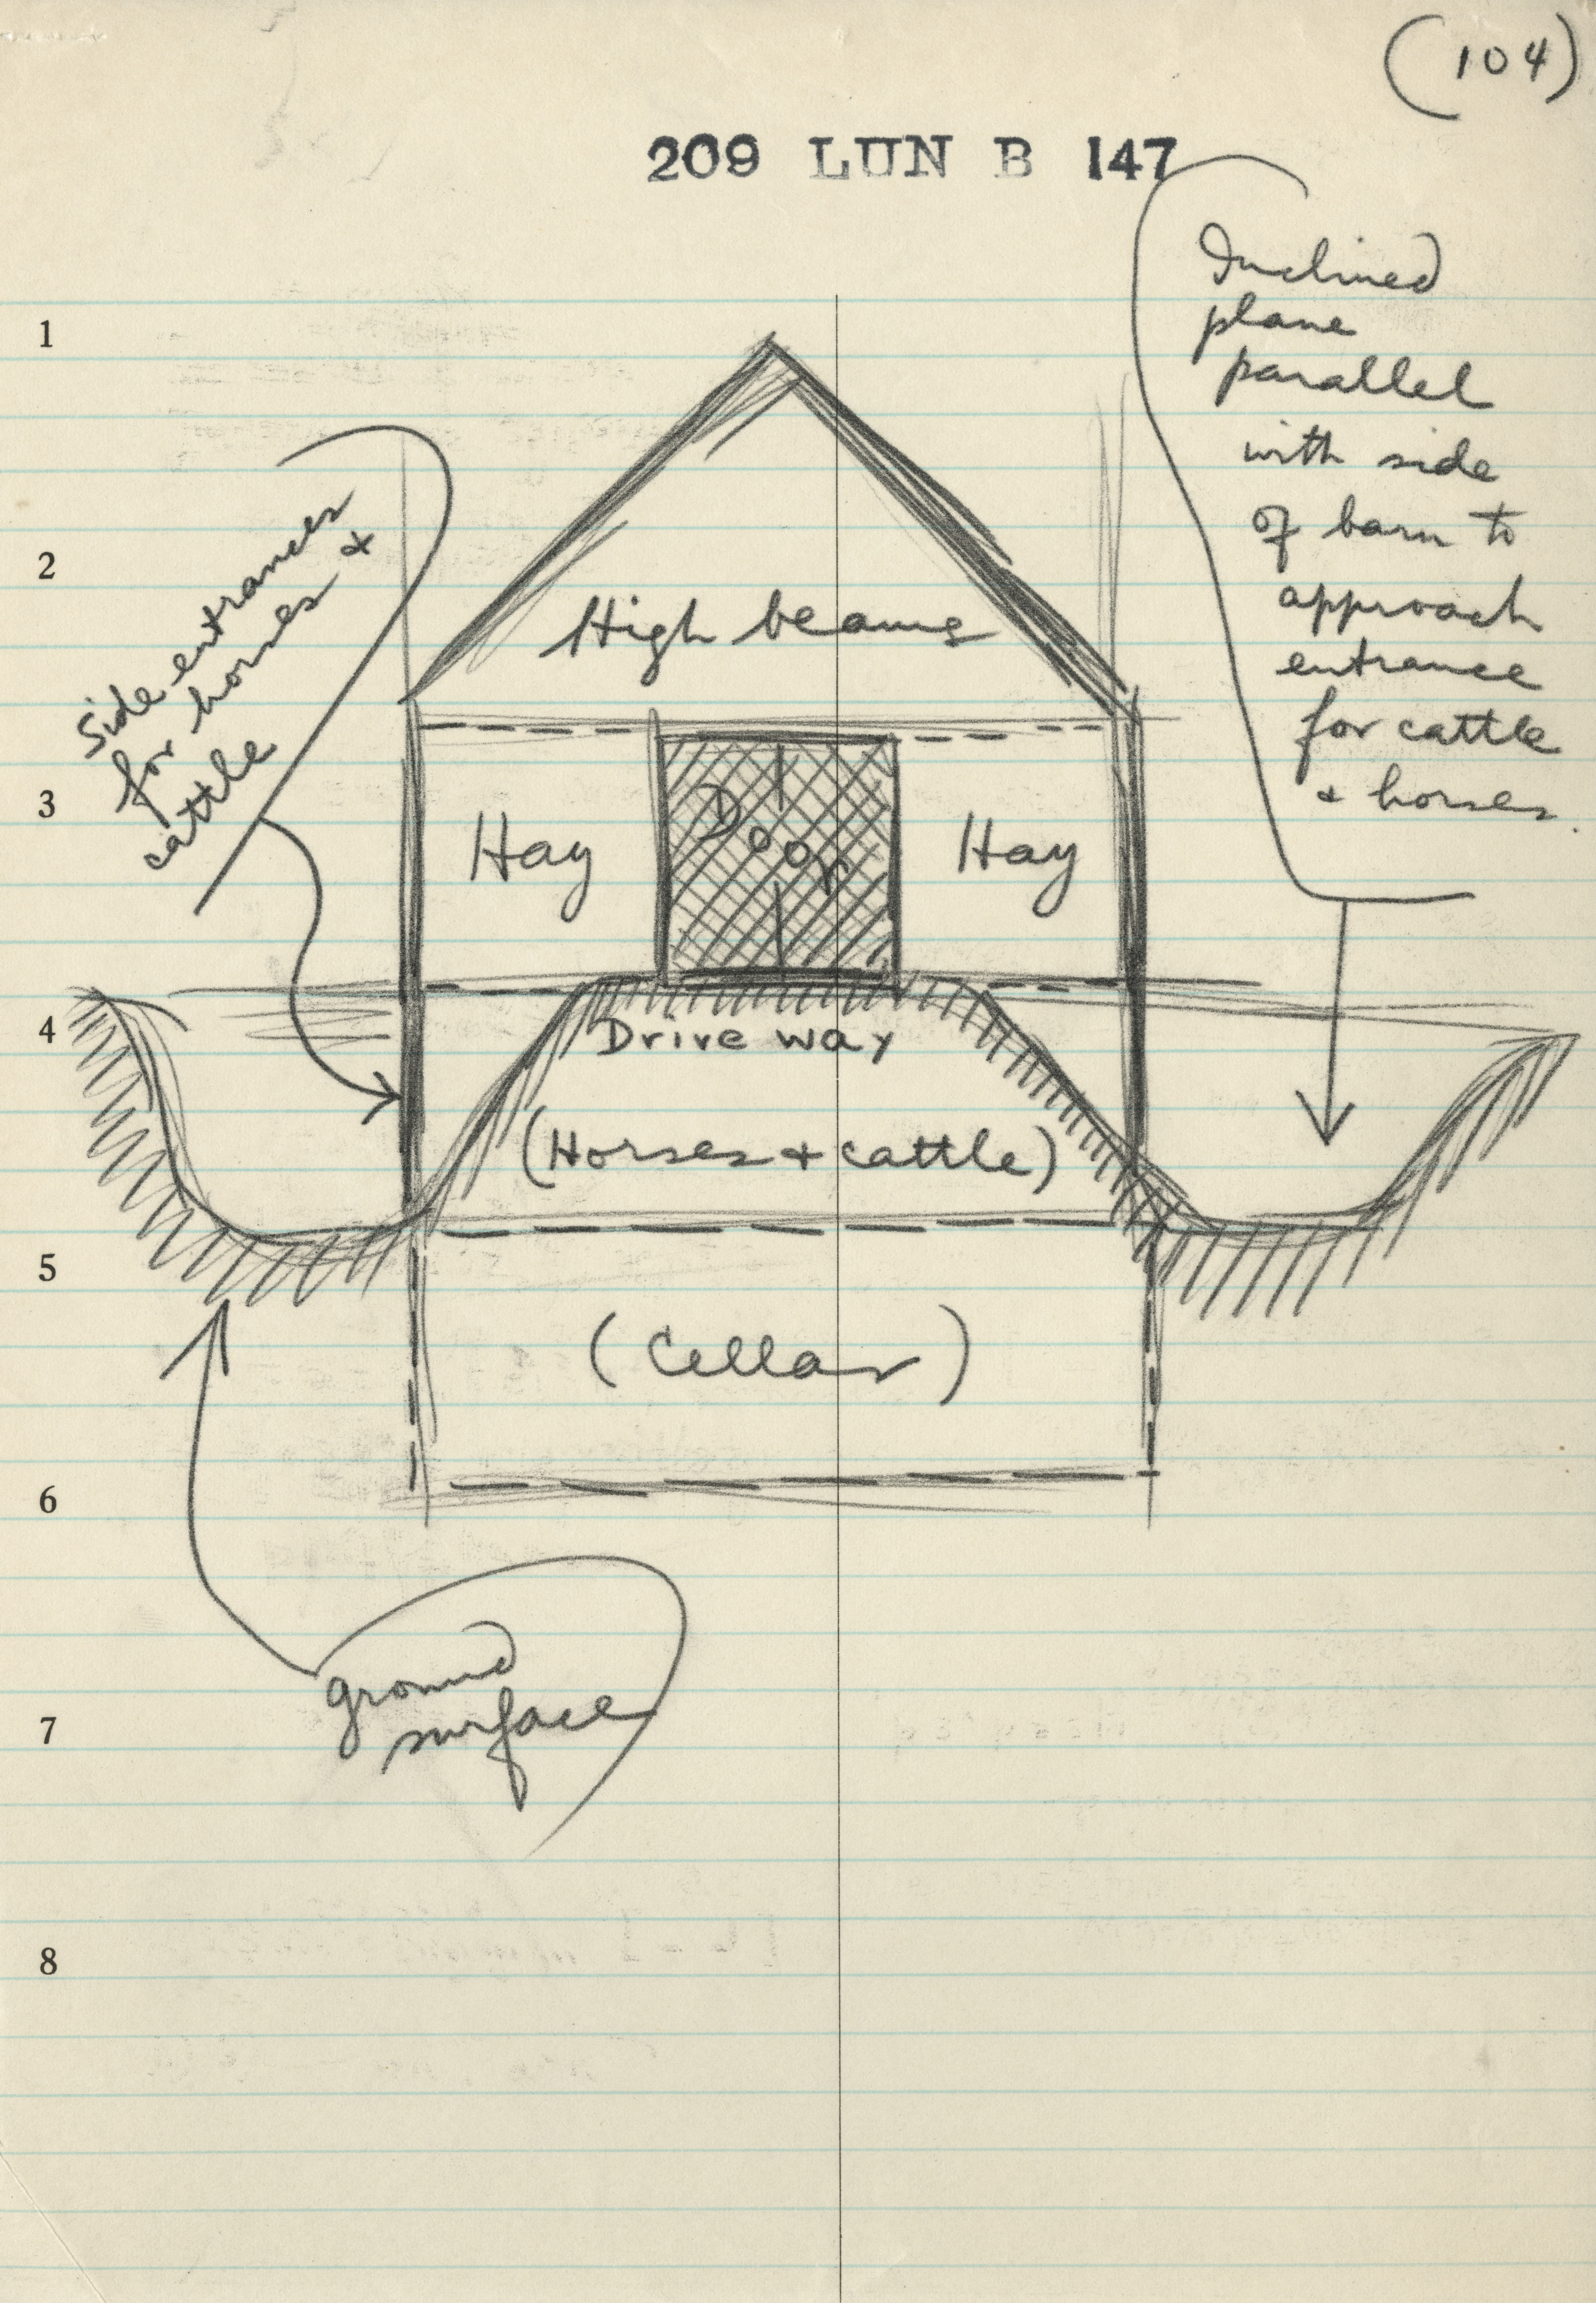 (104)
209 LUN B 147
Inclined
plane
parallel
with side
of barn to
approach
entrance
for cattle
+ horses.
1
2
3
4
5
6
7
8
Side entrances
for horses +
cattle
High beams
Hay
Door
Hay
Drive way
(Horses + cattle)
(Cellar)
ground
surface